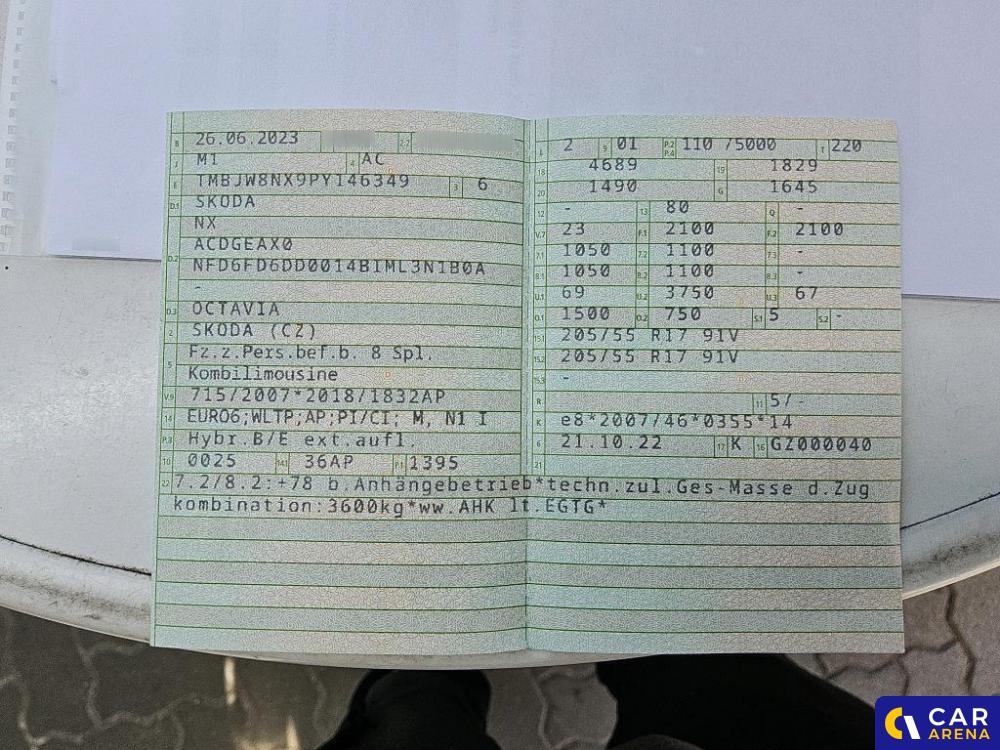 B 26.06.2023 2.2
J M1 4 AC
E TMBJW8NX9PY146349 3 6
D.1 SKODA
NX
D.2 ACDGEAX0
NFD6FD6DD0014B1ML3N1B0A
-
D.3 OCTAVIA
2 SKODA (CZ)
5 Fz.z.Pers.bef.b. 8 Spl.
Kombilimousine
V.9 715/2007*2018/1832AP
14 EURO6;WLTP;AP;PI/CI; M, N1 I
P.3 Hybr.B/E ext.aufl.
10 0025 14.1 36AP P.1 1395
22 7.2/8.2:+78 b.Anhängebetrieb*techn.zul.Ges-Masse d.Zug
kombination:3600kg*ww.AHK lt.EGTG*
L 2 9 01 P.2 P.4 110 /5000 T 220
18 4689 19 1829
20 1490 G 1645
12 - 13 80 Q -
V.7 23 F.1 2100 F.2 2100
7.1 1050 7.2 1100 7.3 -
8.1 1050 8.2 1100 8.3 -
U.1 69 U.2 3750 U.3 67
O.1 1500 O.2 750 S.1 5 S.2 -
15.1 205/55 R17 91V
15.2 205/55 R17 91V
15.3 -
R 11 5/-
K e8*2007/46*0355*14
6 21.10.22 17 K 16 GZ000040
21
CAR
ARENA